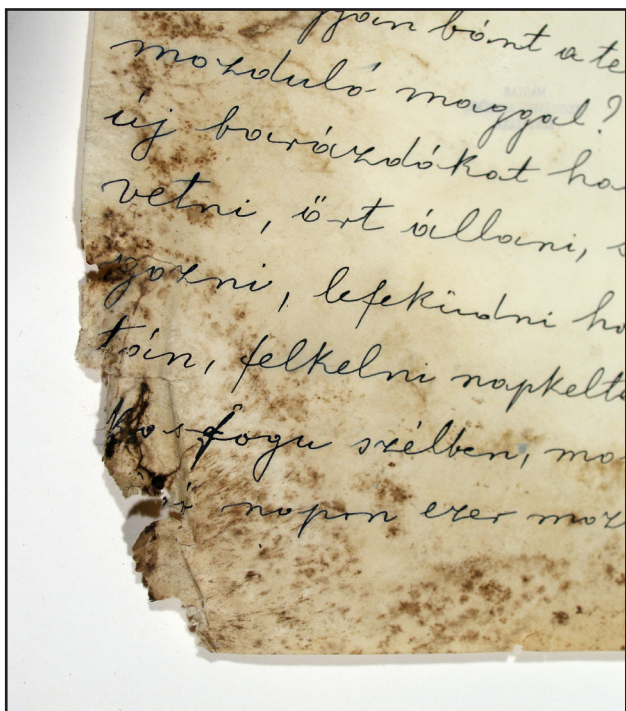 bánt a te
mozduló maggal?
új barázdákat ha
vetni, őrt állani, s
gozni, lefeküdni ho
tán, felkelni napkelte
fogu szélben, mo
napon ezer moz
MAGYAR